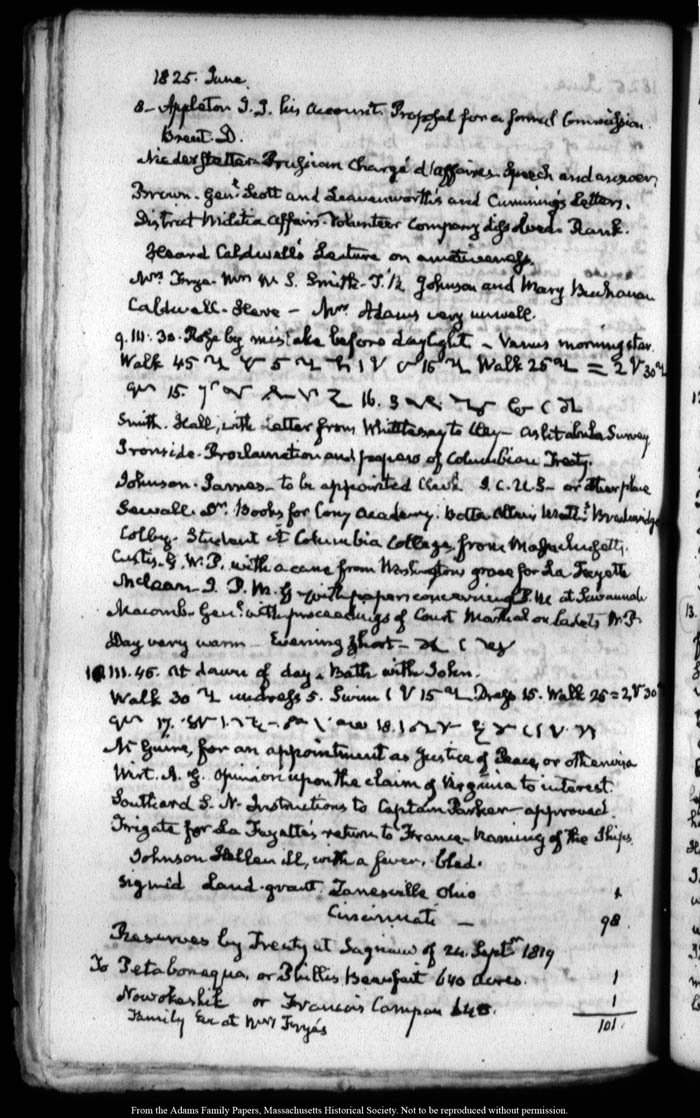 1825. June.
8 - Appleton J. J. his Account. Proposal for a formal Commission.
Brent. D.
Niederstetter. Prussian Chargé d'affaires. Speech and answer.
Brown. Genl. Scott and Leavenworth's and Cumming's Letters.
District Militia Affairs. Volunteer Company dissolved. Rank.
Heard Caldwell's Lecture on amativeness.
Mrs Frye. Mrs W. S. Smith. T. B. Johnson and Mary Buchanan
Caldwell. here - Mrs. Adams very unwell.
9. III: 30. Rose by mistake before daylight - Venus morning star.
Walk 45 5 15 Walk 25 = 2 30
15. 16. 3
Smith. Hall, with Letter from Whittlesey to Clay - Ashtabula Survey
Ironside. Proclamation and papers of Columbian Treaty.
Johnson. James - to be appointed Clerk. I. C. U.S. - or other place
Sewall. Books for Cony Academy. Botta
Colby. Student at Columbia College, from Massachusetts.
Custis. G. W. P. with a cane from Washington's grave for La Fayette
McLean - J. P. M. G - with papers concerning P. M. at Savannah
Macomb. Genl. with proceedings of Court Martial on Cadets W. P.
Day very warm - Evening short -
10 III. 45. At dawn of day. Bath with John.
Walk 30 undress 5. Swim 15 Dress 15. Walk 25 = 2 30
17. 18.
McGuire, for an appointment as Justice of Peace, or otherwise
Wirt. A. G. Opinion upon the claim of Virginia to interest.
Southard S. N. Instructions to Captain Parker - approved.
Frigate for La Fayette's return to France. Naming of the Ships
Johnson Hellen ill, with a fever. bled.
Signed Land grant. Zanesville Ohio 1
Cincinnati - 98.
Reserves by Treaty at Saginaw of 24. Septr. 1819
To Petabonaqua, or Phillis Beaufait 640 acres. 1
Nowokeshik or Francois Campau 640. 1
Family Eve at Mrs Frye's 101.
From the Adams Family Papers, Massachusetts Historical Society. Not to be reproduced without permission.